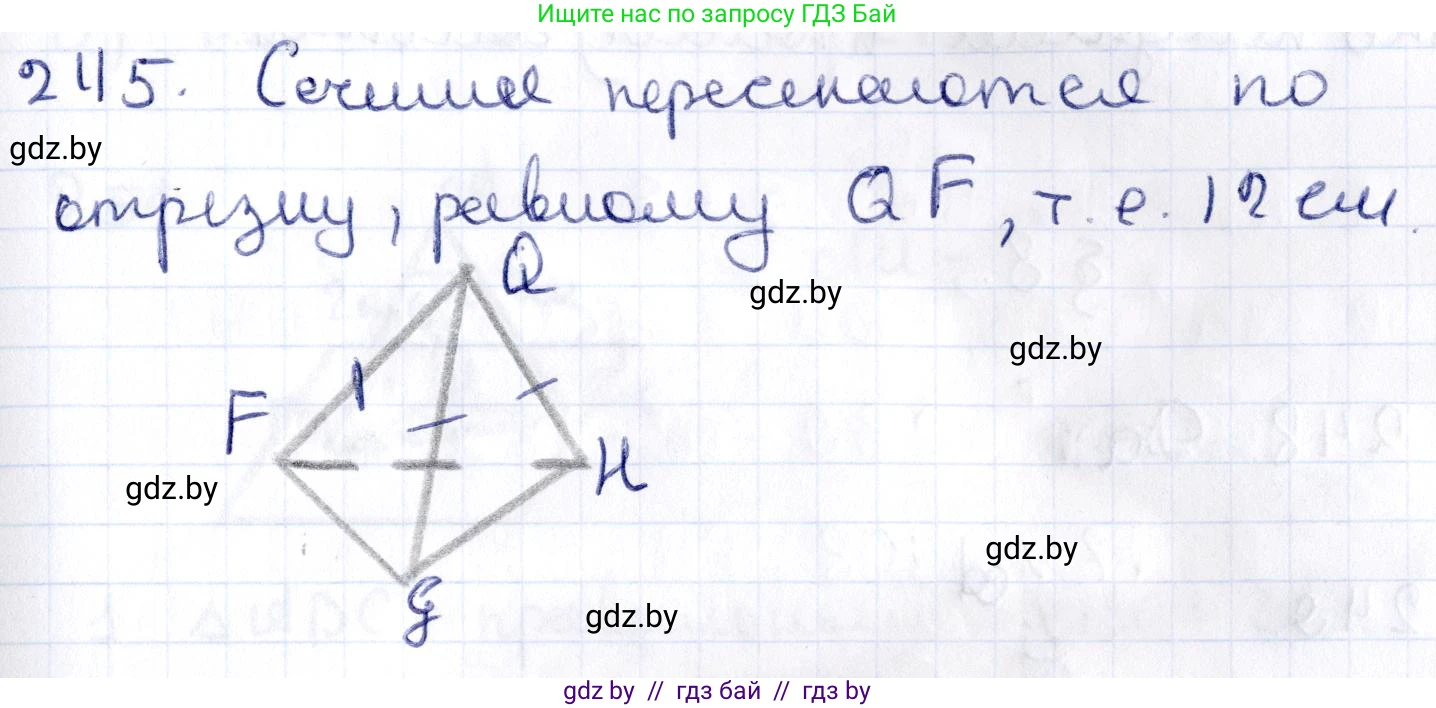 Ищите нас по запросу ГДЗ Бай
245. Сечения пересекаются по
gdz.by
отрезку, равному QF, т.е. 12 см.
Q
gdz.by
gdz.by
F
H
gdz.by
gdz.by
G
gdz.by
gdz by // гдз бай // гдз by